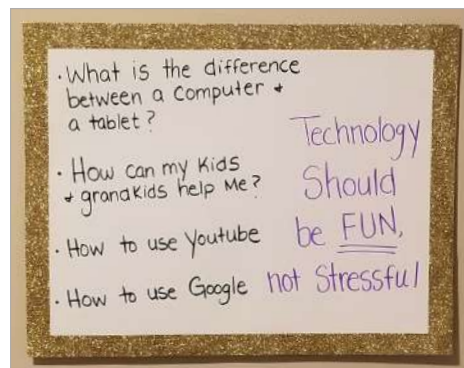 · What is the difference
between a Computer +
a tablet?
· How can my Kids
+ grandkids help Me?
· How to use Youtube
· How to use Google
Technology
Should
be FUN,
not Stressful